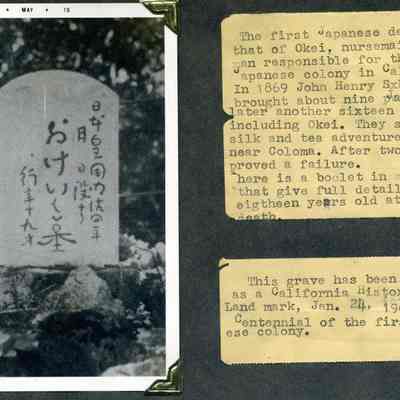 MAY
日本皇国明治四年
月 日没す
おけい 墓
行年十九才
The first Japanese de
that of Okei, nursemai
man responsible for th
Japanese colony in Cal
In 1869 John Henry
brought about nine
later another sixteen
including Okei. They s
silk and tea adventure
near Coloma. After two
proved a failure.
here is a booklet in
that give full detail
eigtheen years old at
death.
This grave has been
as a California Histo
Land mark, Jan. 24, 19
Centennial of the firs
ese colony.